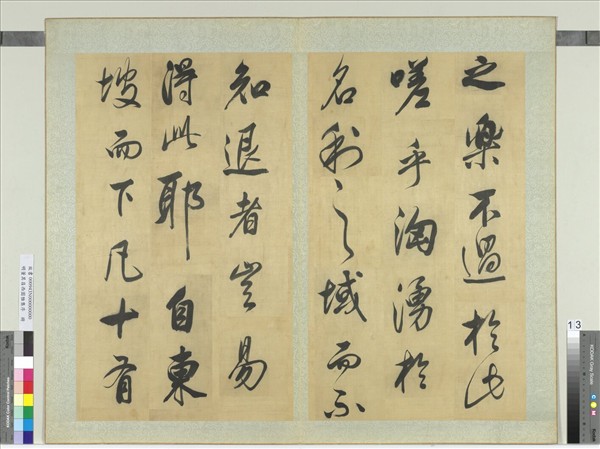 之樂不過於此
嗟乎洶湧於
名利之域而不
知退者豈易
得此耶自東
坡而下凡十有
13
KODAK Gray Scale
C Y M